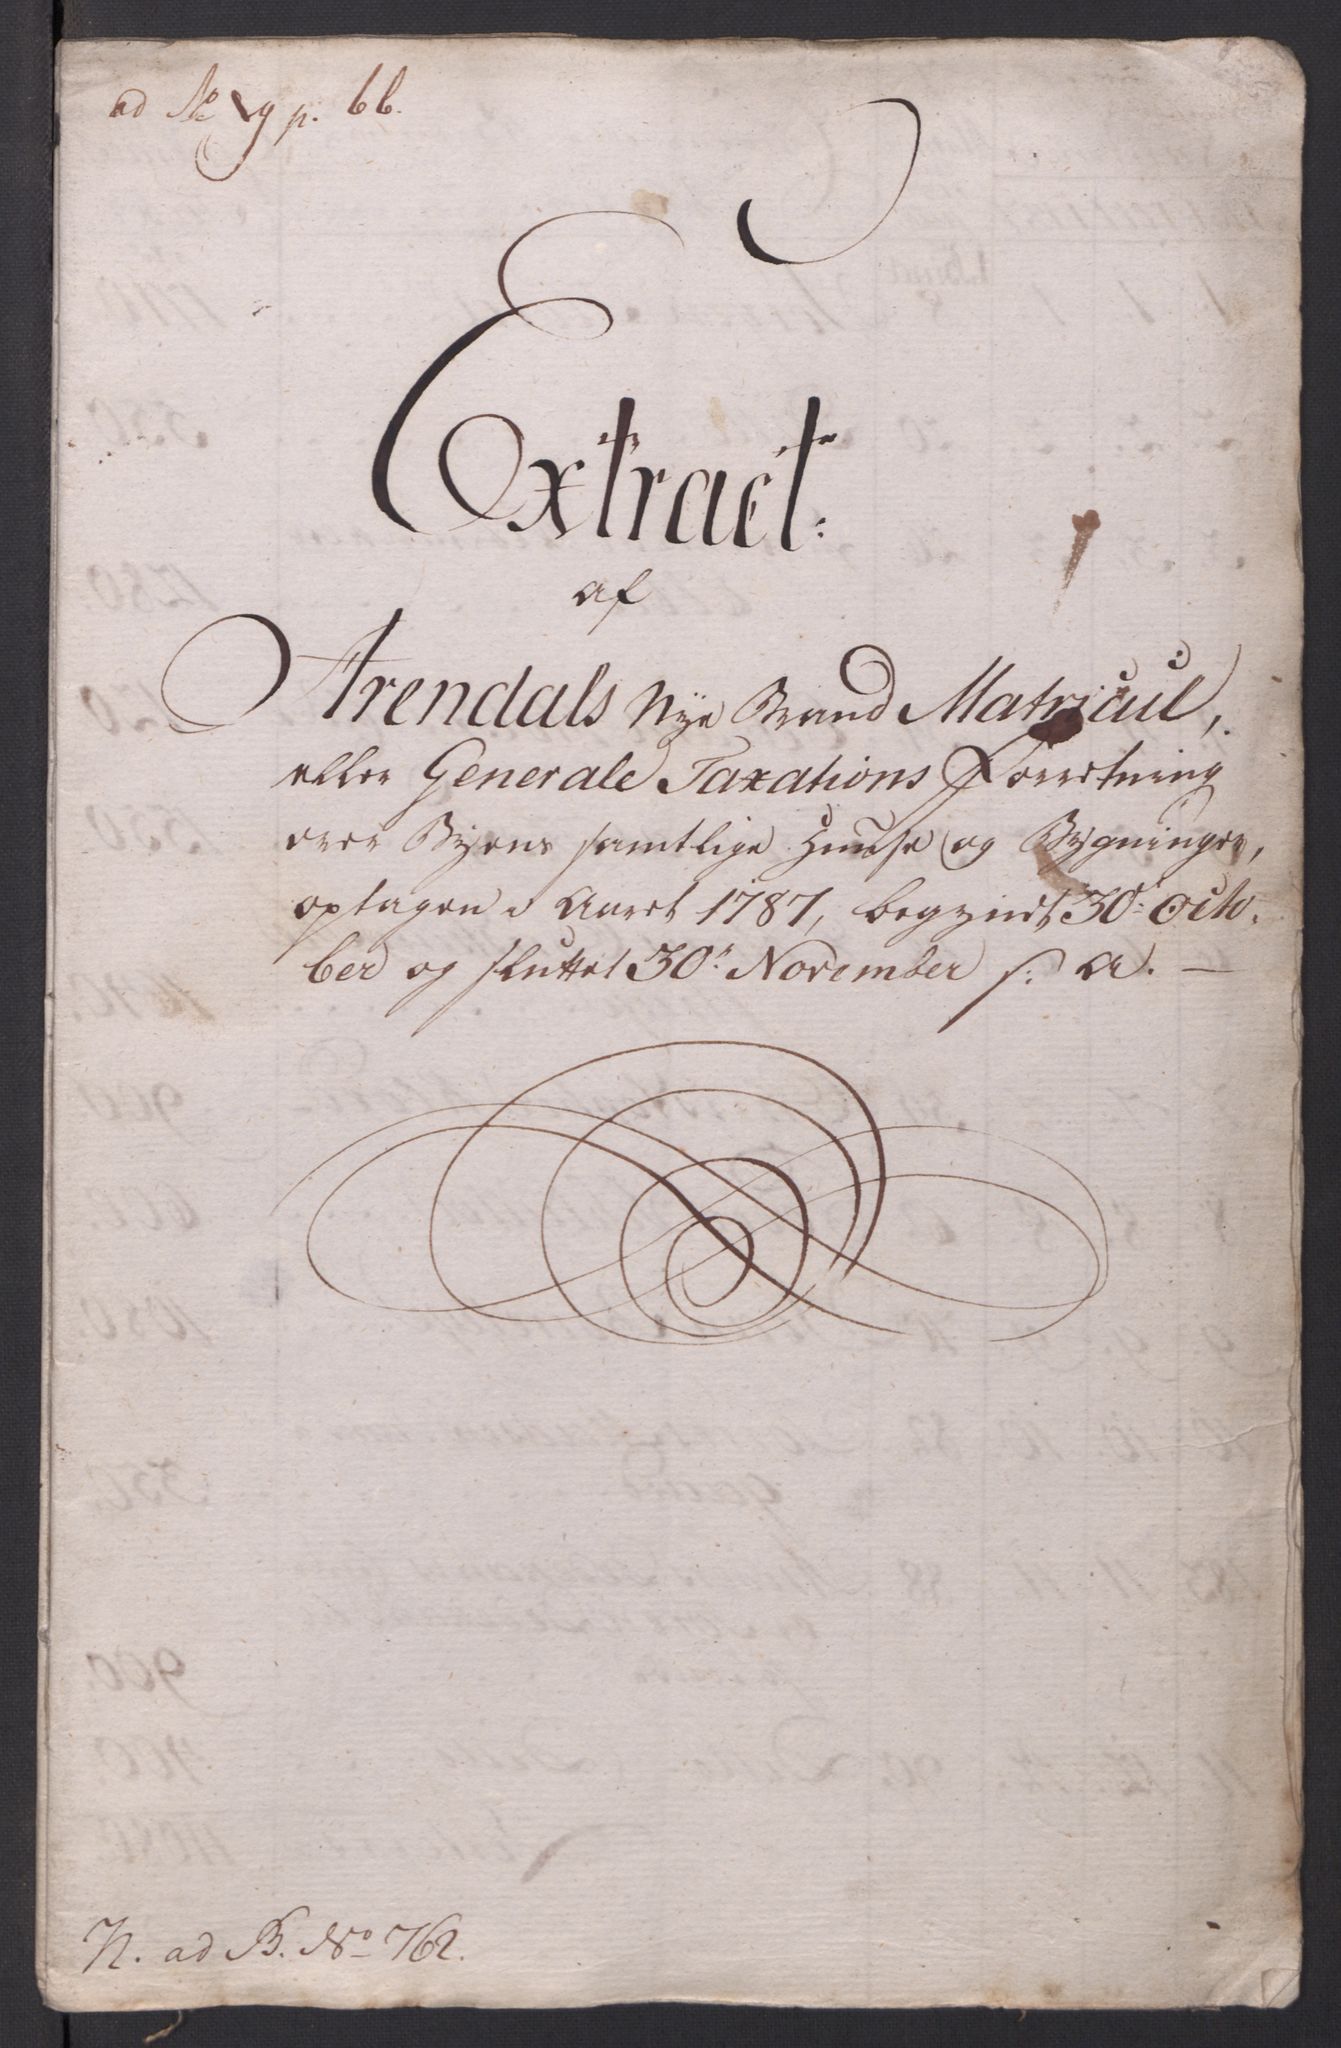 ad No 9 p. 66.
Extract
af
Arendals Nye Brand Matricul,
eller Generale Taxations Forretning
over Byens samtlige Huuse og Bygninger,
optagen i Aaret 1787, begyndt 30. Octo-
ber og sluttet 30. November s: A. —
N. ad B. No 762.